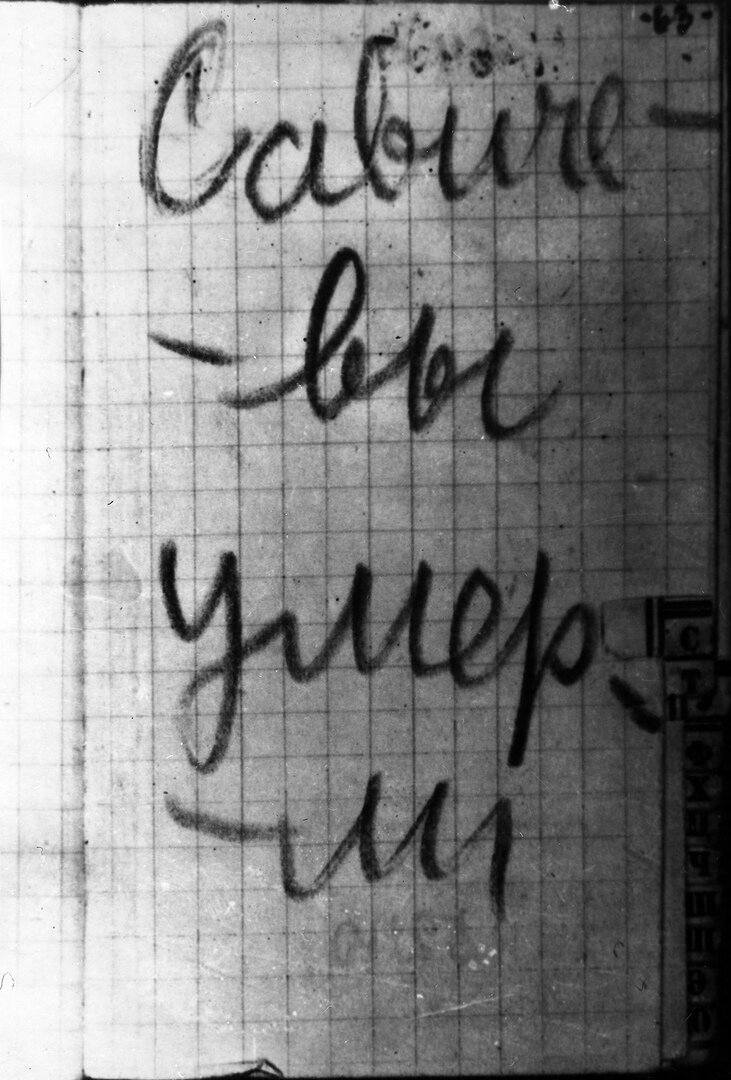 Савиче-
-вы
умер-
-ли
С
Т
Ф
Х
Ц
Ч
Ш
Щ
Э
Ю